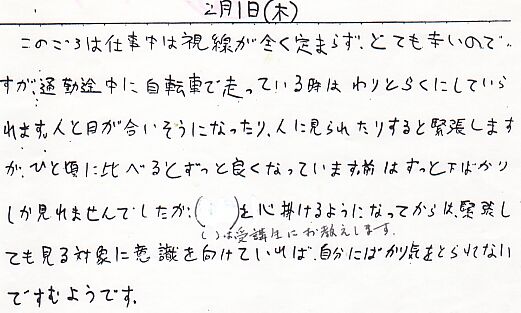 2月1日(木)
このごろは仕事中は視線が全く定まらず、とても辛いので
すが、通勤途中に自転車で走っている時はわりとらくにしていら
れます。人と目が合いそうになったり、人に見られたりすると緊張します
が、ひと頃に比べるとずっと良くなっています。前はずっと下ばかり
しか見れませんでしたが、( )を心掛けるようになってからは、緊張し
( )は受講生にお教えします。
ても見る対象に意識を向けていれば、自分にばかり気をとられない
ですむようです。